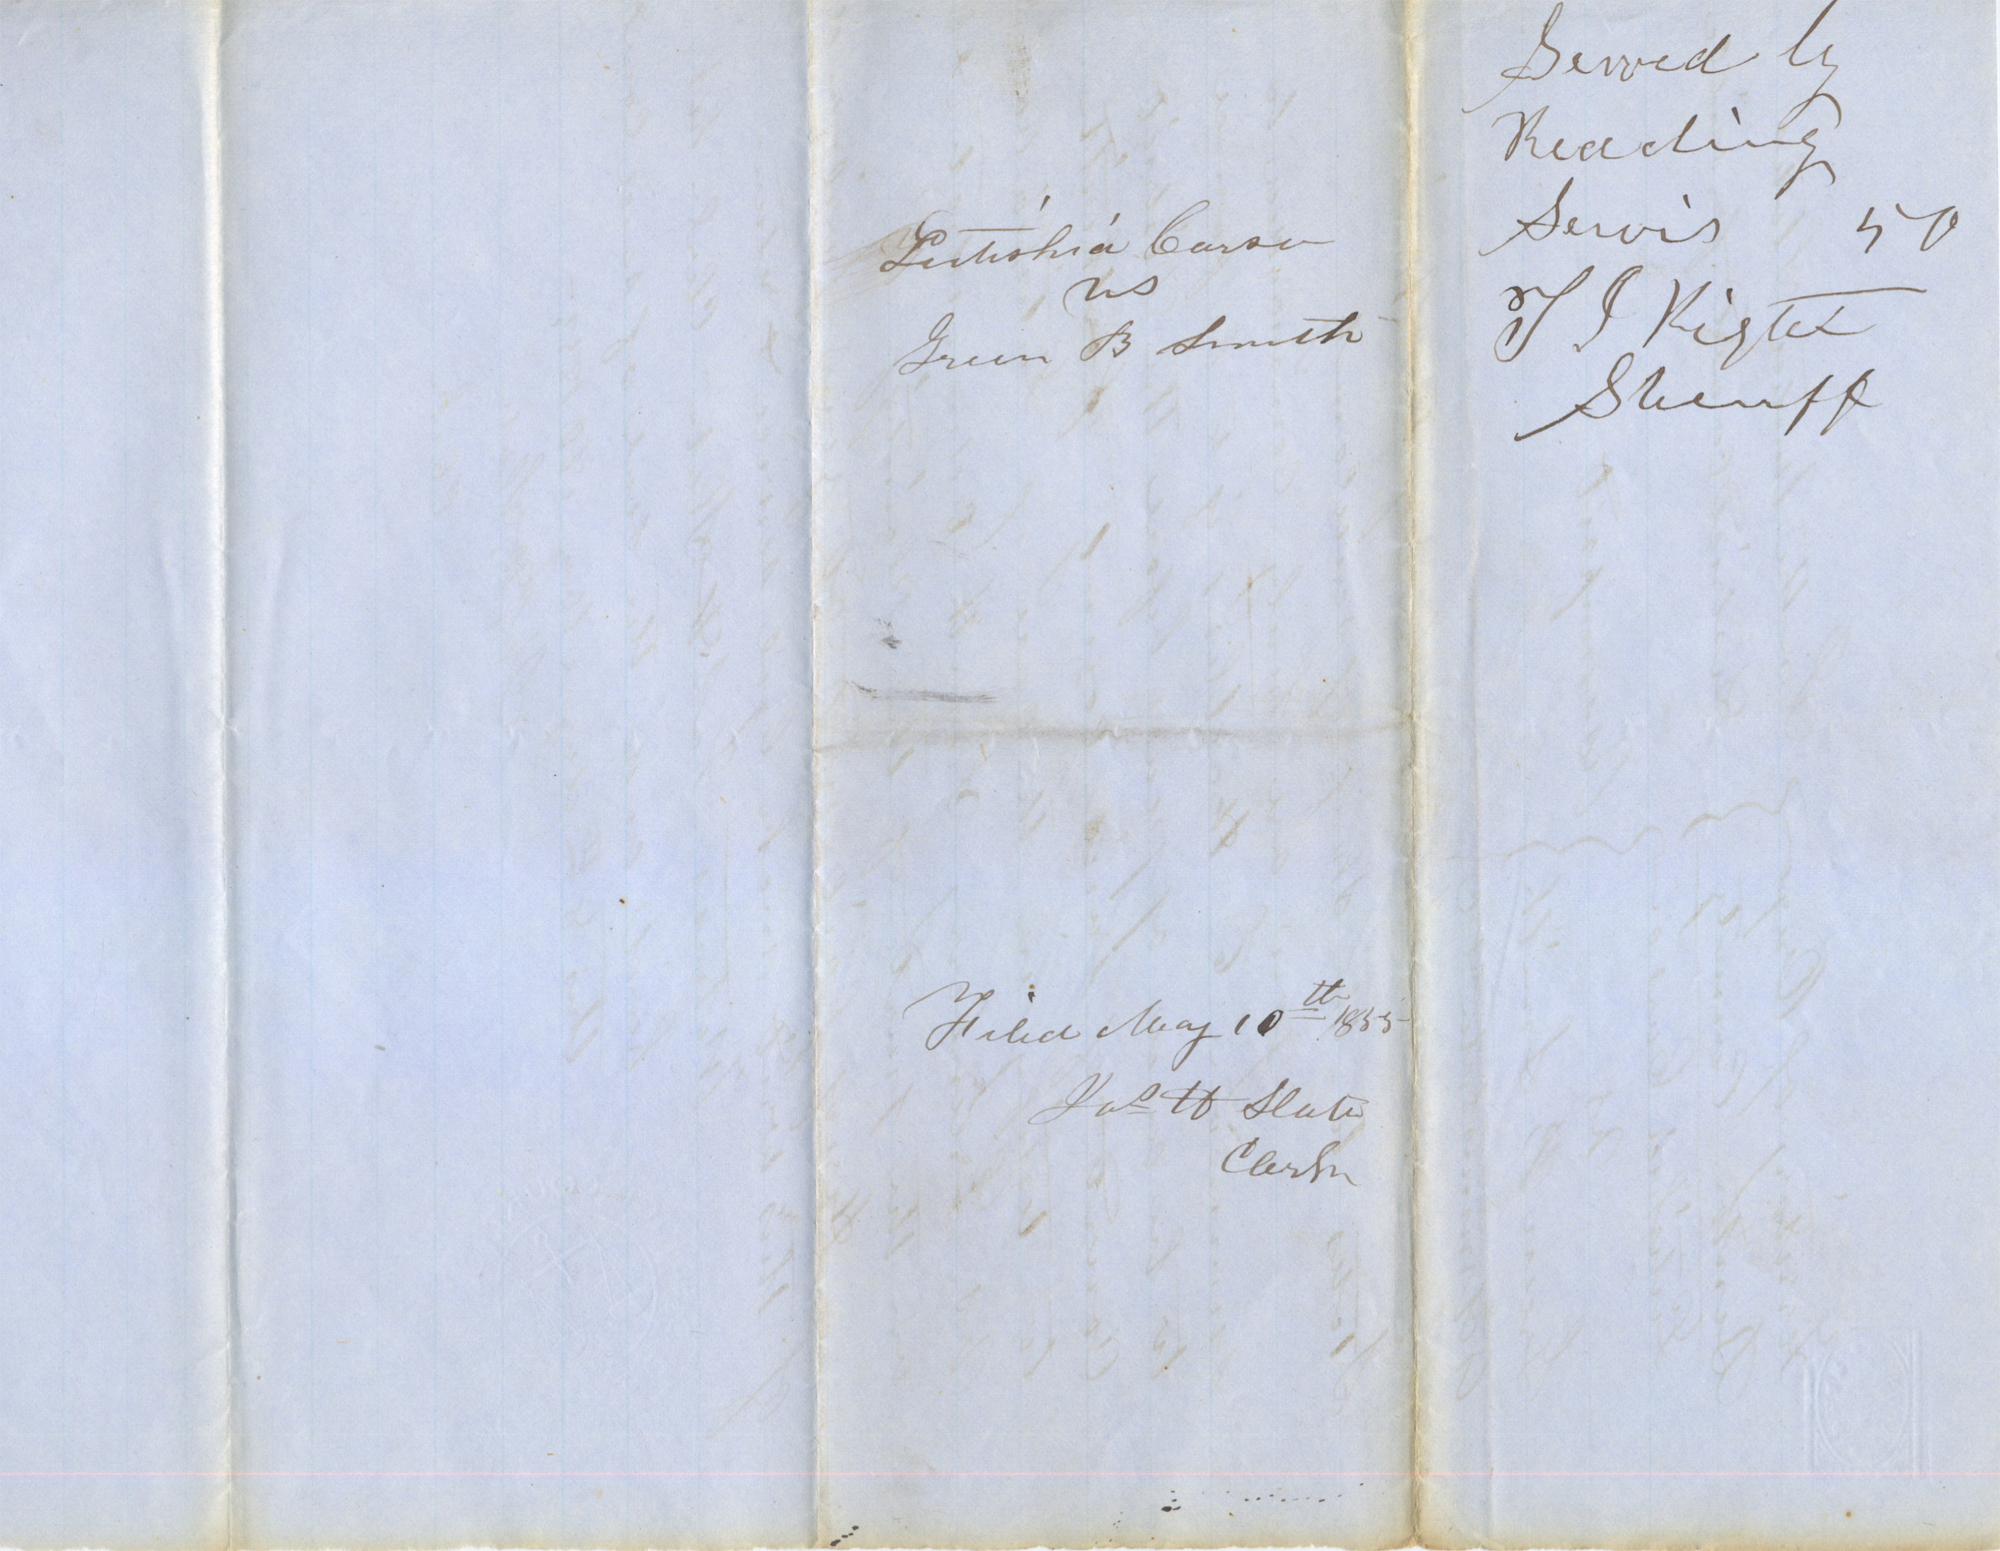 Letishia Carson
vs
Green B Smith
Filed May 10th 1855
Jas H Slater
Clerk
Served by
Reading
Servis 50
T J Right
Sheriff